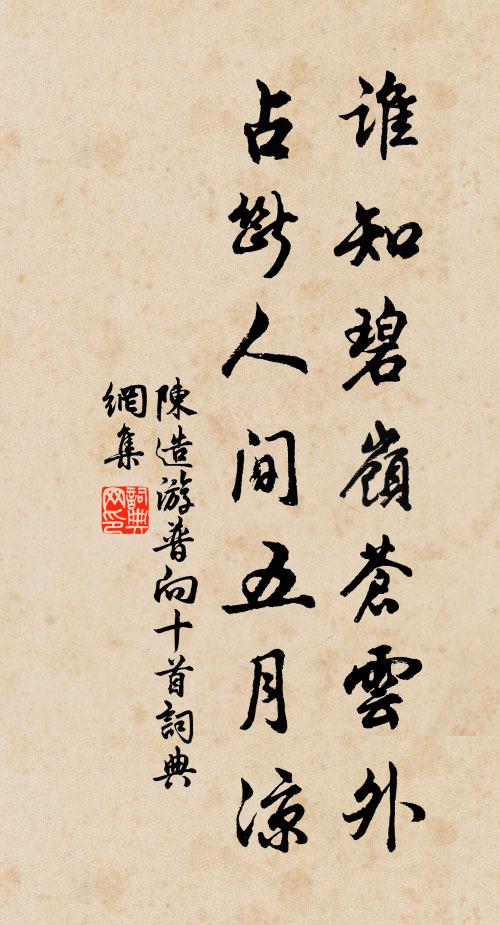 谁知碧嶺蒼雲外
占斷人间五月凉
陳造游普向十首詞典
網集
詞典网印